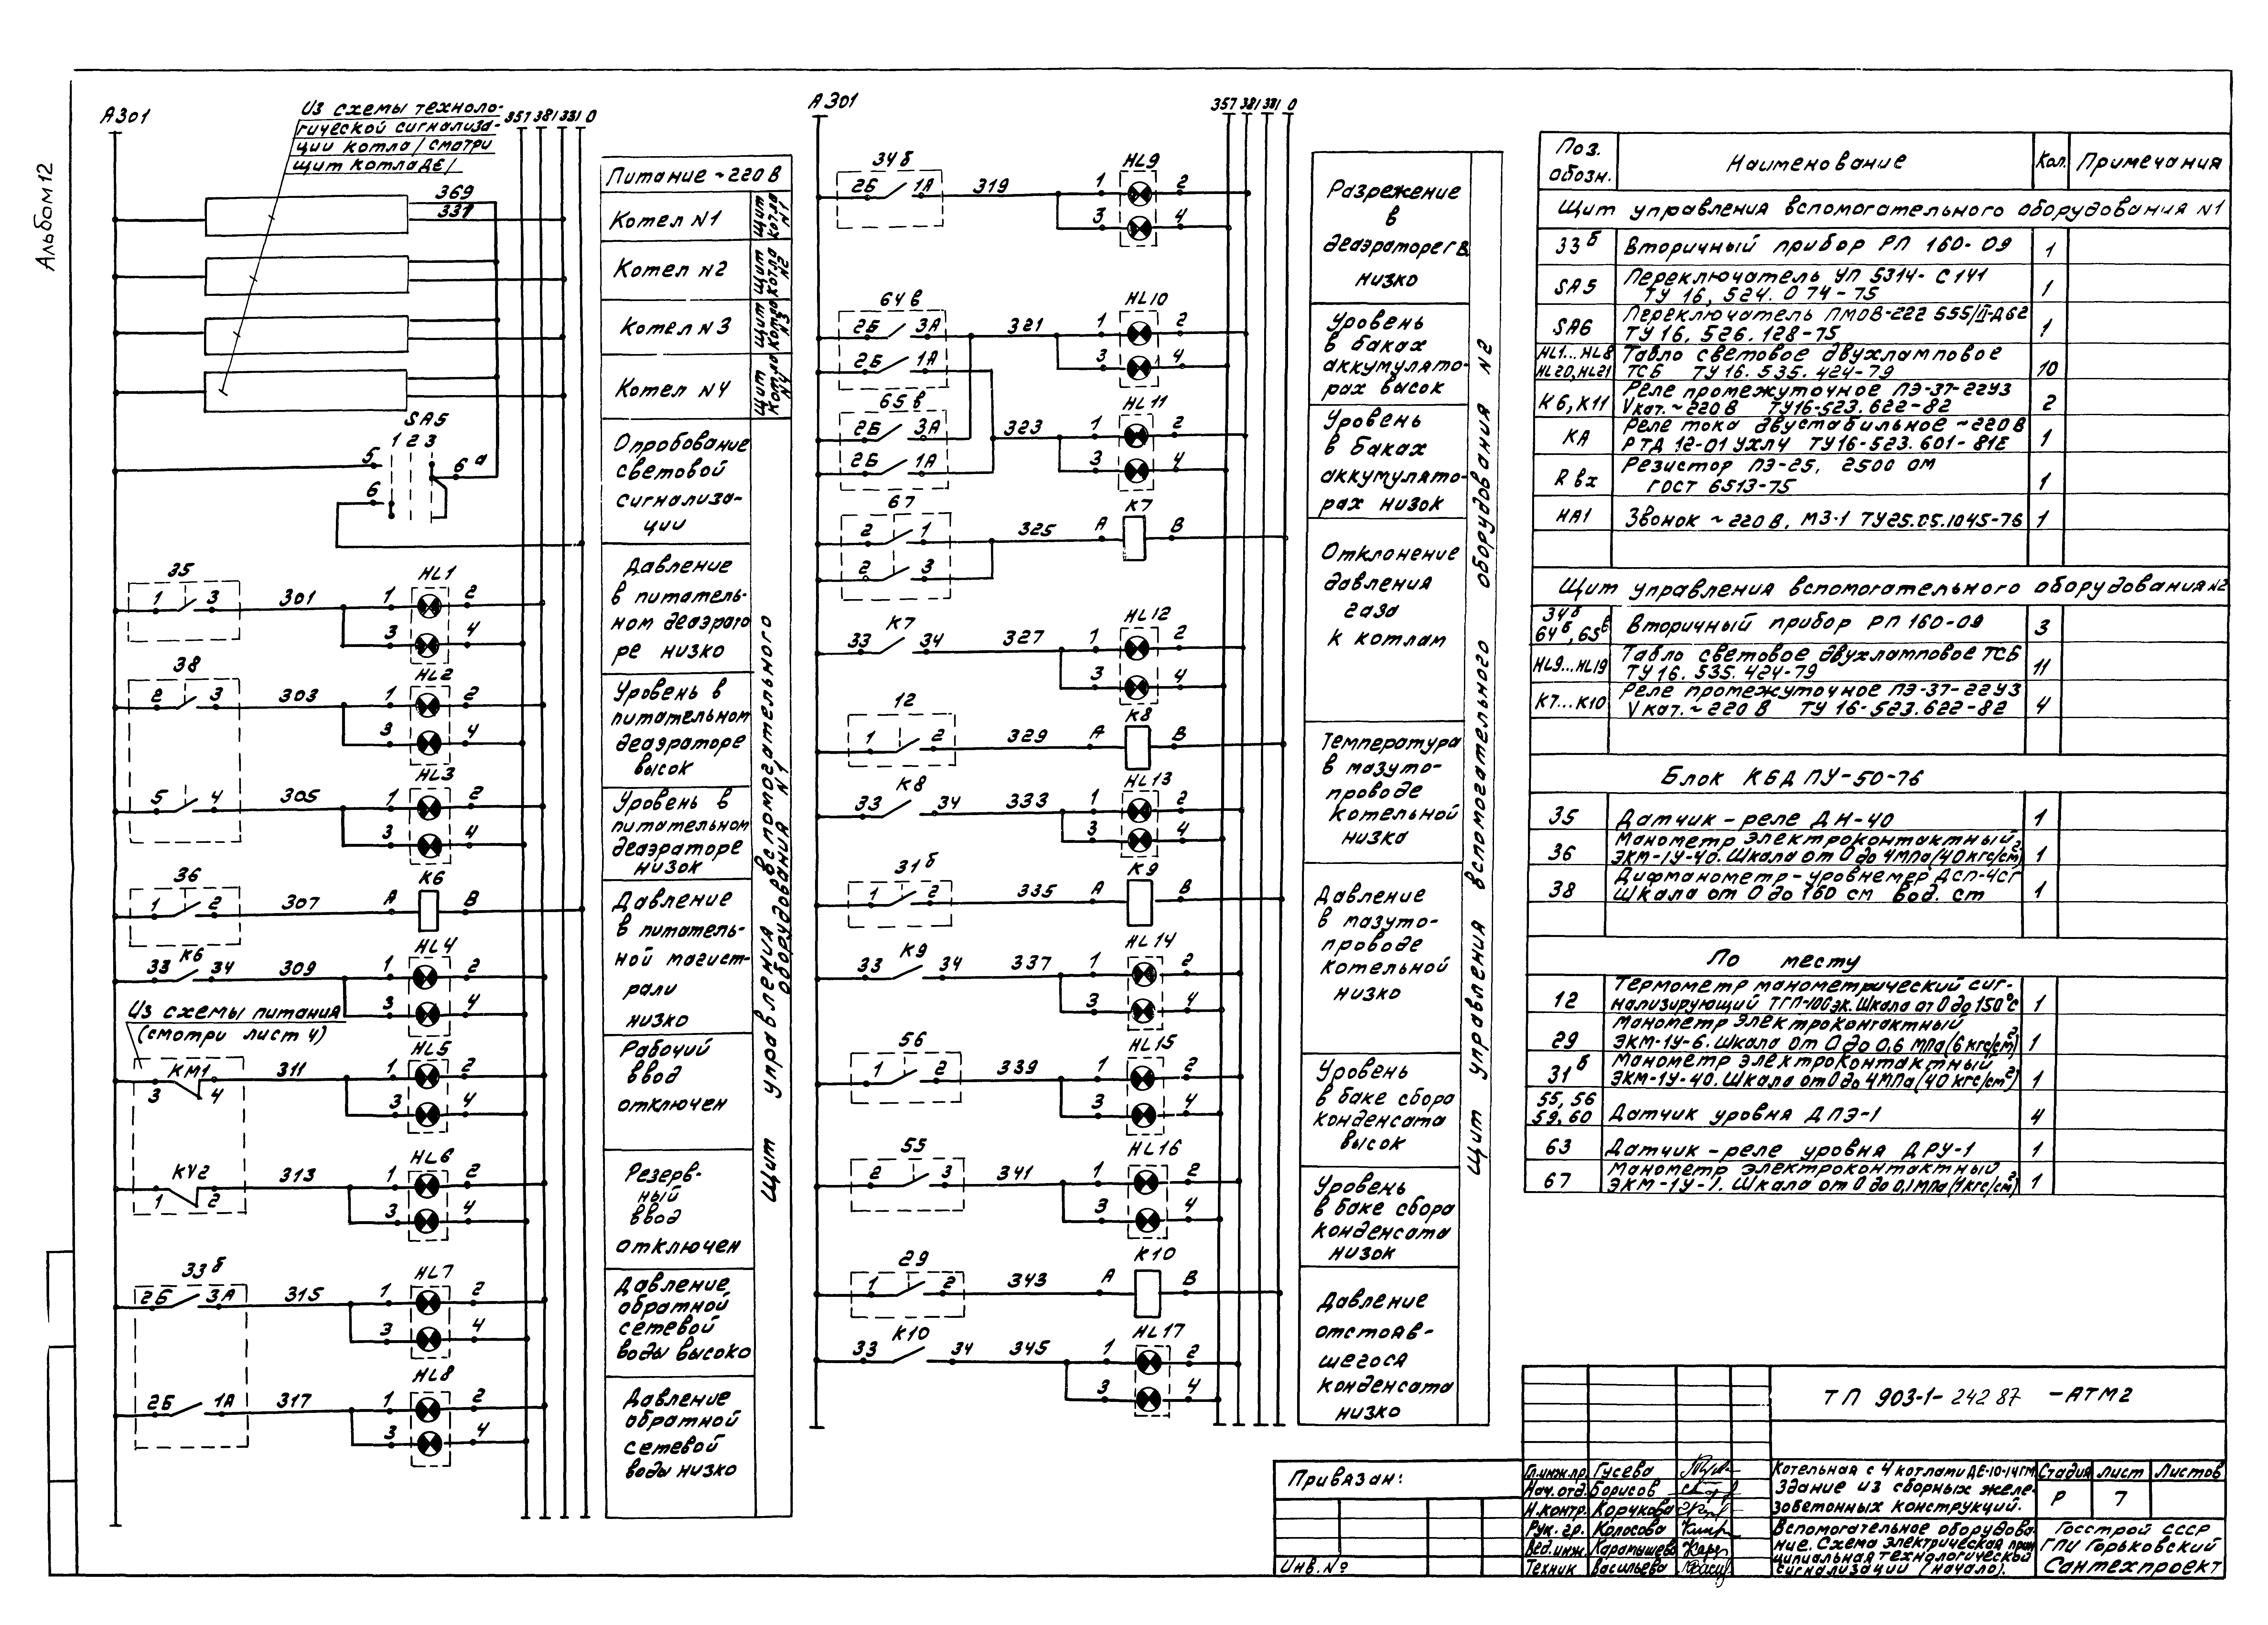 Альбом 12
А301
Из схемы техноло-
гической сигнализа-
ции котла/смотри
щит котла ДЕ/
357 381 331 0
369
331
SA5
1 2 3
5
6ª
6
35
1 3 301 1 HL1 2
3 4
38
2 3 303 1 HL2 2
3 4
5 4 305 1 HL3 2
3 4
36
1 2 307 А К6 В
К6
33 34 309 1 HL4 2
3 4
Из схемы питания
(смотри лист 4)
КМ1
3 4 311 1 HL5 2
3 4
КУ2
1 2 313 1 HL6 2
3 4
33б
2Б 3А 315 1 HL7 2
3 4
2Б 1А 317 1 HL8 2
3 4
Питание ~220 В
Котел N1
Щит котла N1
Котел N2
Щит котла N2
Котел N3
Щит котла N3
Котел N4
Щит котла N4
Опробование
световой
сигнализа-
ции
Давление
в питатель-
ном деаэрато
ре низко
Уровень в
питательном
деаэраторе
высок
Уровень в
питательном
деаэраторе
низок
Давление
в питатель-
ной магист-
рали
низко
Рабочий
ввод
отключен
Резерв-
ный
ввод
отключен
Давление
обратной
сетевой
воды высоко
Давление
обратной
сетевой
воды низко
Щит управления вспомогательного
оборудования N1
А301
357 381 331 0
34б
2Б 1А 319 1 HL9 2
3 4
64в
2Б 3А 321 1 HL10 2
2Б 1А 3 4
65в
2Б 3А 323 1 HL11 2
2Б 1А 3 4
67
2 1 325 А К7 В
2 3
К7
33 34 327 1 HL12 2
3 4
12
1 2 329 А К8 В
К8
33 34 333 1 HL13 2
3 4
31б
1 2 335 А К9 В
К9
33 34 337 1 HL14 2
3 4
56
1 2 339 1 HL15 2
3 4
55
2 3 341 1 HL16 2
3 4
29
1 2 343 А К10 В
К10
33 34 345 1 HL17 2
3 4
Разрежение
в
деаэраторе гв
низко
Уровень
в баках
аккумулято-
рах высок
Уровень
в баках
аккумулято-
рах низок
Отклонение
давления
газа
к котлам
Температура
в мазуто-
проводе
котельной
низка
Давление
в мазуто-
проводе
котельной
низко
Уровень
в баке сбора
конденсата
высок
Уровень
в баке сбора
конденсата
низок
Давление
отстояв-
шегося
конденсата
низко
Щит управления вспомогательного оборудования N2
Поз. обозн. Наименование Кол. Примечания
Щит управления вспомогательного оборудования N1
33б Вторичный прибор РП 160-09 1
SA5 Переключатель УП 5314-С141
ТУ 16, 524. 074-75 1
SA6 Переключатель ПМОВ-222 555/II-Д62
ТУ 16. 526. 128-75 1
HL1...HL8 Табло световое двухламповое
HL20, HL21 ТСБ ТУ 16. 535. 424-79 10
К6, К11 Реле промежуточное ПЭ-37-22У3
Vкат. ~220 В ТУ16-523.622-82 2
КА Реле тока двустабильное ~220 В
РТД 12-01 УХЛ4 ТУ16-523.601-81Е 1
Rвх Резистор ПЭ-25, 2500 ом
ГОСТ 6513-75 1
НА1 Звонок ~220 В, МЗ-1 ТУ25.05.1045-76 1
Щит управления вспомогательного оборудования N2
34б
64б, 65б Вторичный прибор РП 160-09 3
HL9...HL19 Табло световое двухламповое ТСБ
ТУ 16. 535. 424-79 11
К7...К10 Реле промежуточное ПЭ-37-22У3
Vкат. ~220 В ТУ 16-523.622-82 4
Блок КБДПУ-50-76
35 Датчик-реле ДН-40 1
36 Манометр электроконтактный
ЭКМ-1У-40. Шкала от 0 до 4МПа (40 кгс/см²) 1
38 Дифманометр-уровнемер ДСП-4СГ
Шкала от 0 до 160 см вод. ст 1
По месту
12 Термометр манометрический сиг-
нализирующий ТГП-100эк. Шкала от 0 до 150°С 1
29 Манометр электроконтактный
ЭКМ-1У-6. Шкала от 0 до 0,6 МПа (6 кгс/см²) 1
31б Манометр электроконтактный
ЭКМ-1У-40. Шкала от 0 до 4МПа (40 кгс/см²) 1
55, 56
59, 60 Датчик уровня ДПЭ-1 4
63 Датчик-реле уровня ДРУ-1 1
67 Манометр электроконтактный
ЭКМ-1У-1. Шкала от 0 до 0,1МПа (1кгс/см²) 1
ТП 903-1-242 87 -АТМ2
Привязан:
Инв. №
Гл.инж.пр. Гусева
Нач. отд. Борисов
Н.контр. Корчкова
Рук. гр. Колосова
Вед.инж. Карамышева
Техник Васильева
Котельная с 4 котлами ДЕ-10-14ГМ.
Здание из сборных желе-
зобетонных конструкций.
Стадия Лист Листов
Р 7
Вспомогательное оборудова-
ние. Схема электрическая прин
ципиальная технологической
сигнализации (начало).
Госстрой СССР
ГПИ Горьковский
Сантехпроект